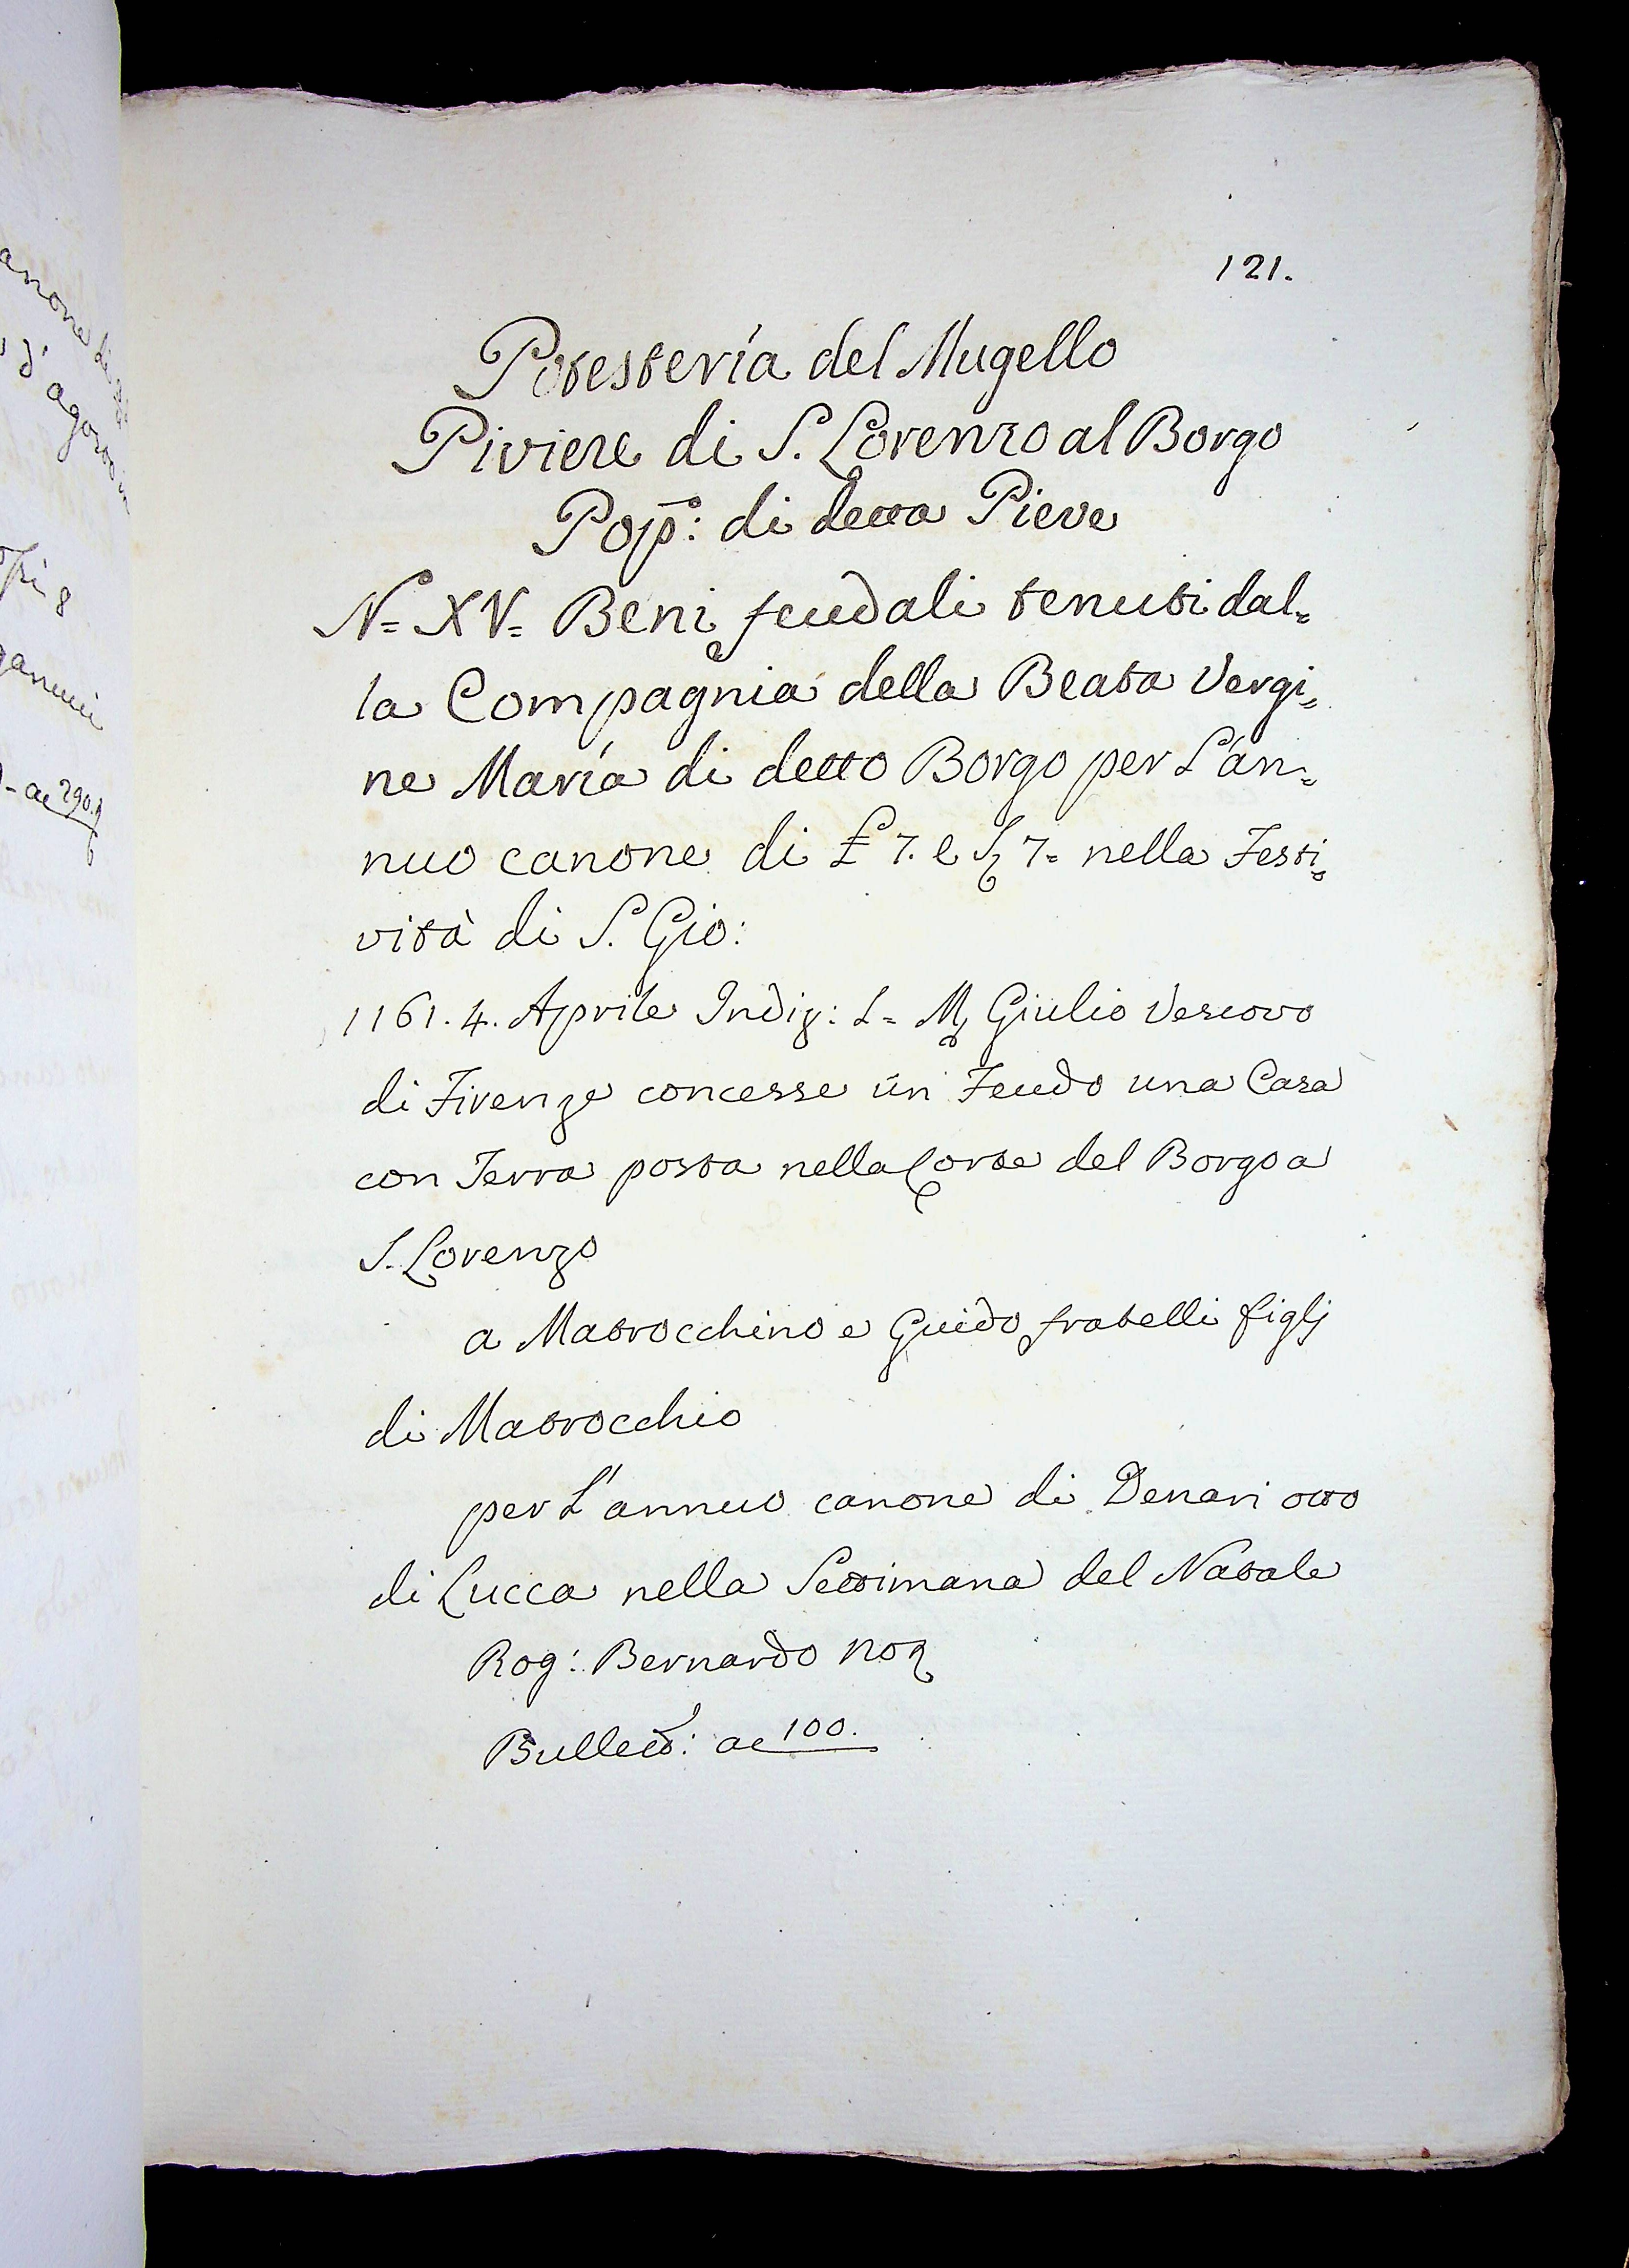 121.
Potesteria del Mugello
Piviere di S. Lorenzo al Borgo
Pop: di detta Pieve
N= XV= Beni feudali tenuti dal=
la Compagnia della Beata Vergi=
ne María di detto Borgo per L'an=
nuo canone di £ 7. e S 7= nella Festi=
vità di S. Gio:
1161. 4. Aprile Indiz: L= M Giulio Vescovo
di Firenze concesse in Feudo una Casa
con Terra posta nella Corte del Borgo a
S. Lorenzo
a Matrocchino e Guido fratelli figlj
di Matrocchio
per L'annuo canone di Denari otto
di Lucca nella Settimana del Natale
Rog: Bernardo No
Bullett: ac 100.